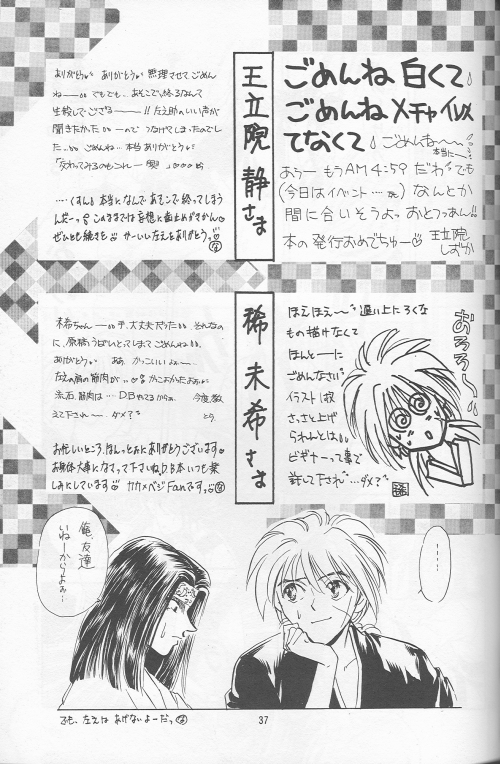 王立院 静さま
ごめんね 白くて
ごめんね メチャイソメ
てなくて
ごめんね〜
本当に〜
おうっー もうAM4:59だわ でも
(今日はイベント……) なんとか
間に合いそうよっ おとっつぁん!!
本の発行おめでちゅー♡ 王立院
しずか
ありがとう ありがとう 無理させてごめん
ね でもでも、あそこで終るなんて
生殺しでござるーー!! 左之助のいい声が
聞きたかった ーので つなげてしまったのでし
た ごめんね… 本当 ありがとう
……くすん 本当になんで あそこで終ってしまう
んだーっ このままでは妄想に歯止めがきかん
ぜひとも続きを かーいい左之をありがとうっ
稀 未希さま
ほえほえ〜 遅い上にろくな
もの描けなくて
ほんとーーに
ごめんなさい
イラスト1枚
さっさと上げ
られんとは
ビギナーって事で
許して下され…ダメ?
稀
おろろ〜
未希ちゃんーー 大丈夫だった それなの
に、原稿うばいとってしまってごめんね
ありがとう ああ、かっこいいよぉー
左之の肩の筋肉が かっこよかったよぉ
流石筋肉は…D.Bやってるからね 今度教
えて下されー ダメ? とら
お忙しいところ、ほんっとぉにありがとうございます
お身体大事になさって下さいね D.B本いつも楽
しみにしています カカ×ベジFanですっ
俺、友達
いねーからよぉ〜
…‥
でも、左之は あげないよーだっ
37